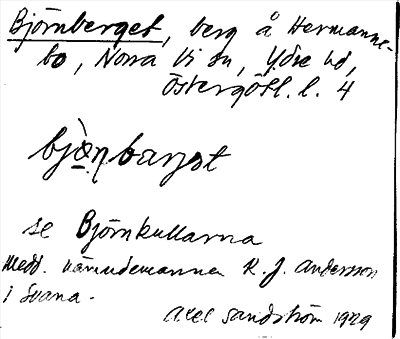 Björnberget, berg å Hermanne-
bo, Norra Vi sn, Ydre hd,
Östergötl. l. 4
bjò̱ṇbarjət
se Björnkullarna
Medd. nämndemannen K. J. Andersson
i Svana.
Axel Sandström 1929